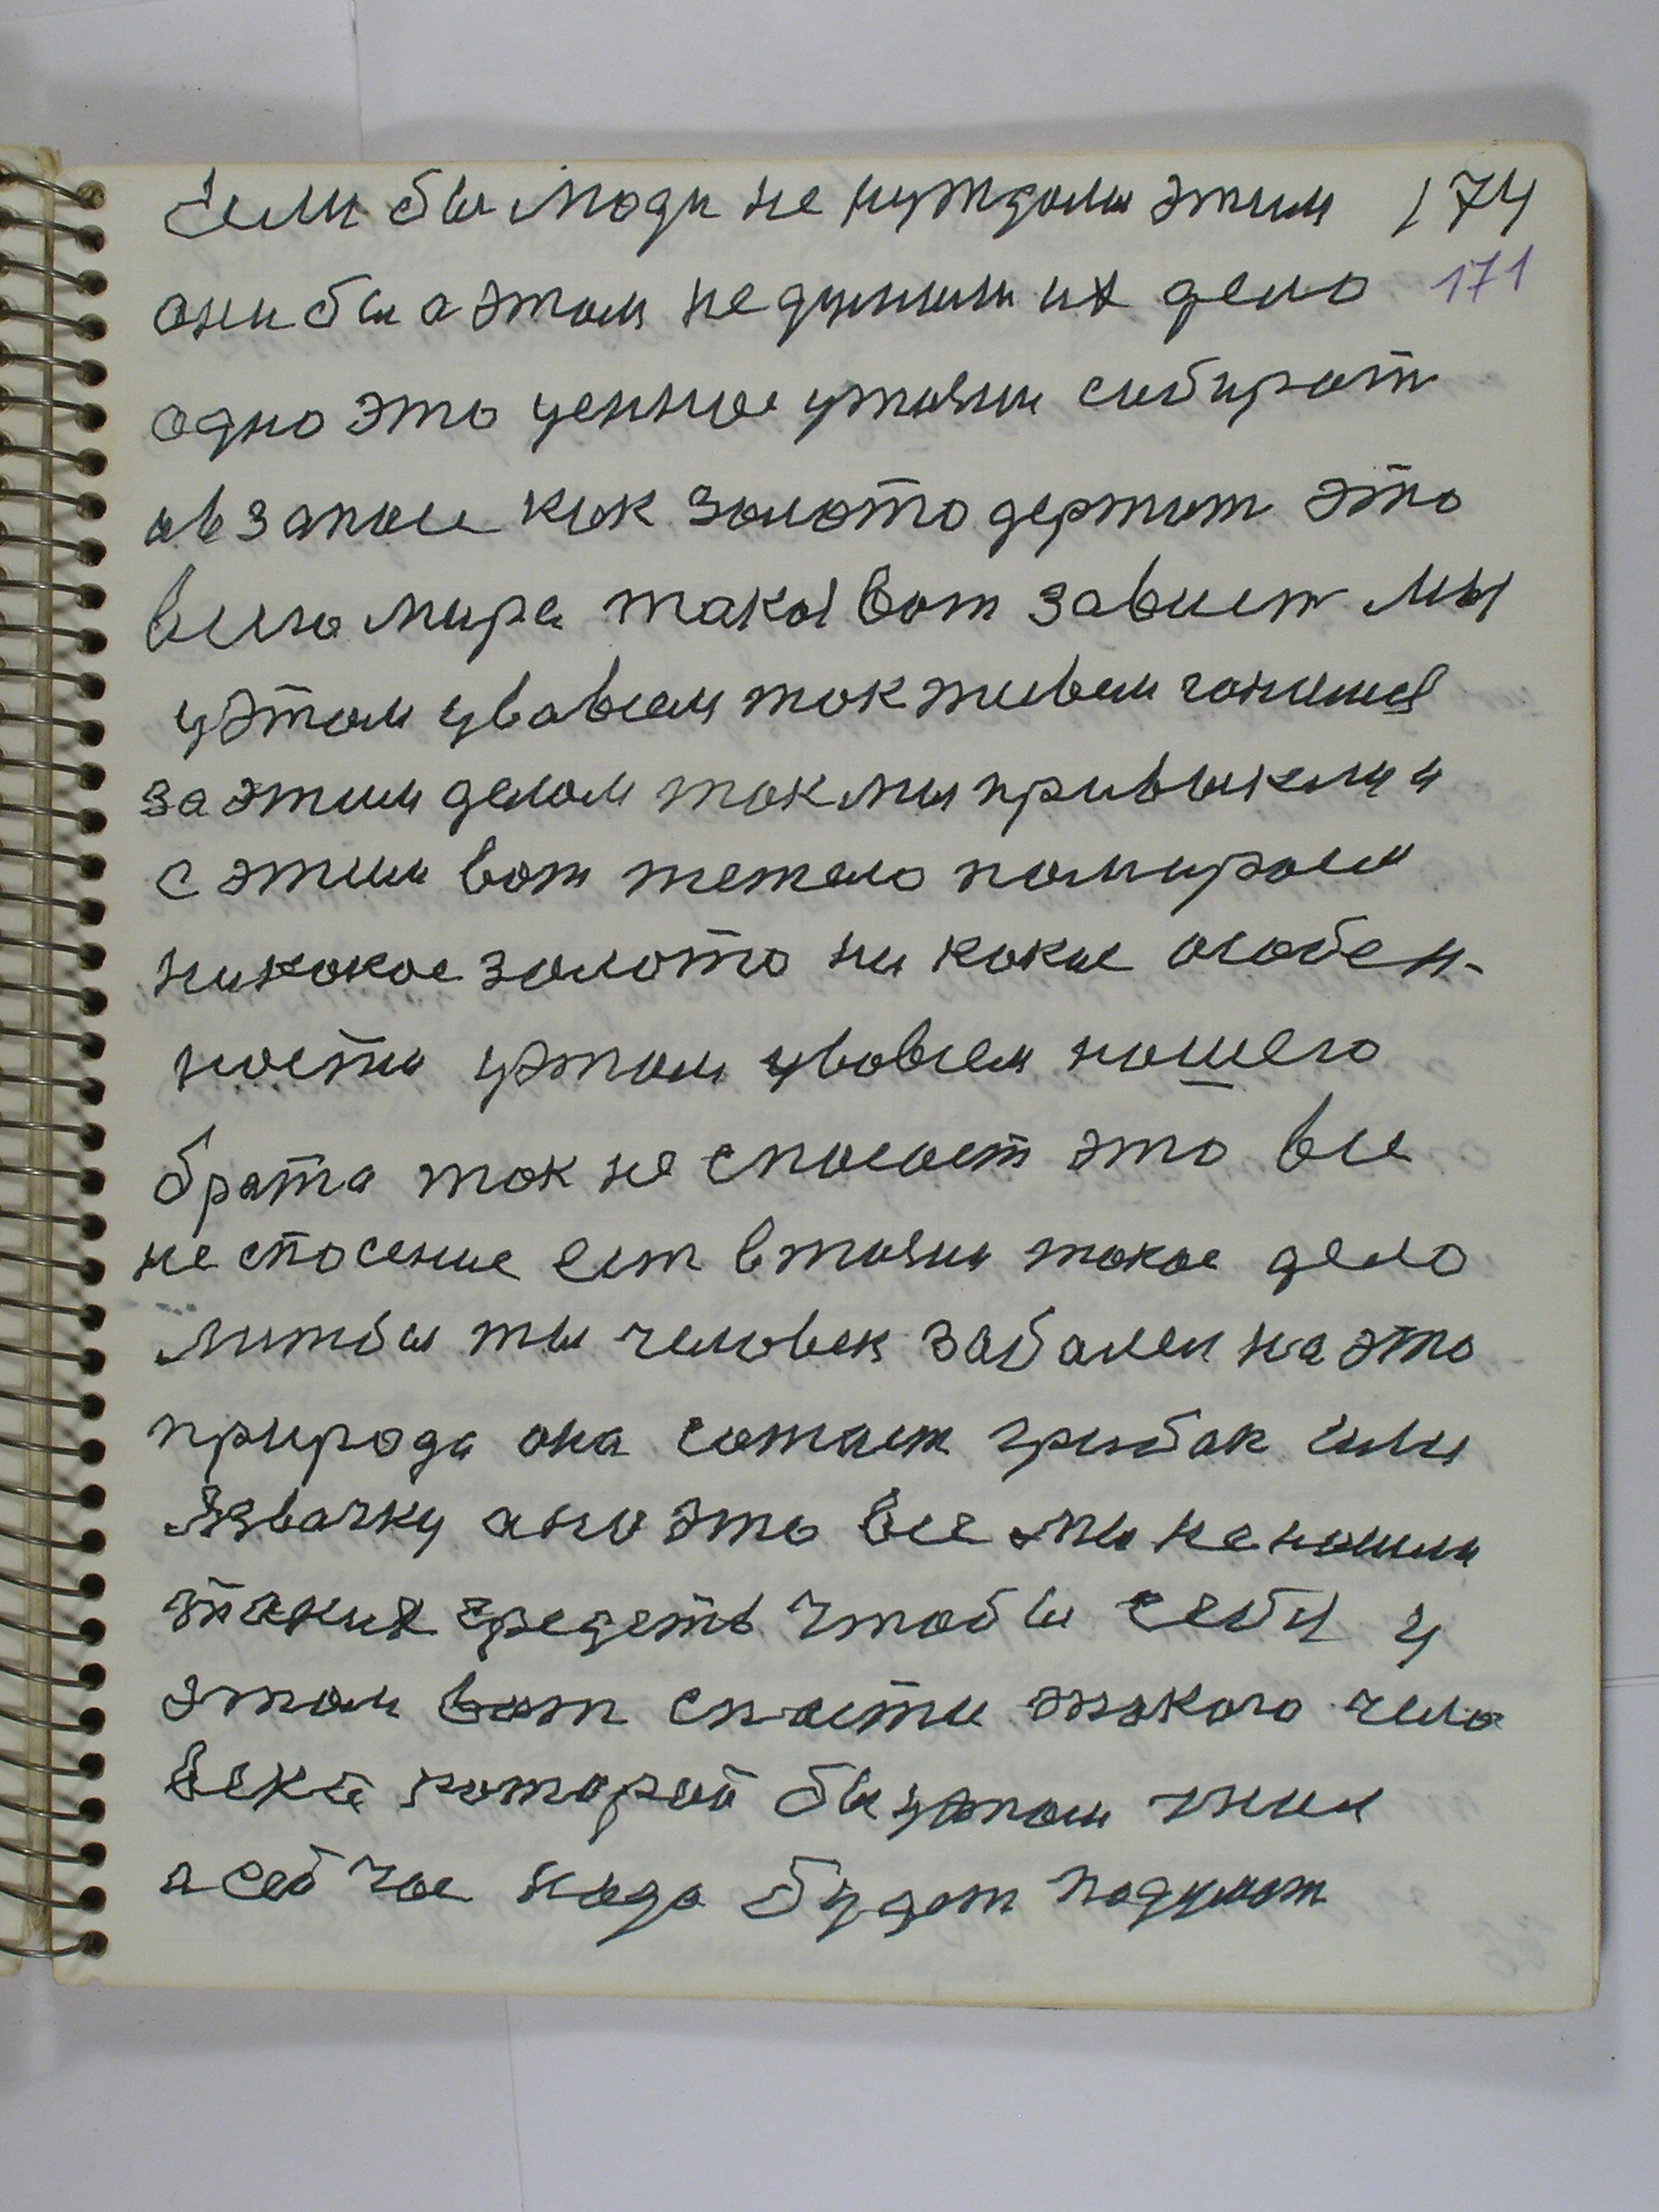 Если бы люди не нуждали этим 174
они бы а этом не думали их дело 171
одно это ценное утаяли собират
а в запасе как золото держит это
всего мира такая вот зависит мы
у этом у вавсем так живем гонимся
за этим делом так мы привыкли и
с этим вот тежело помираем
никакое золото ни какие особен-
ности у этом у вовсем нашего
брата так не спасает это все
не спосение ест в тияли такое дело
литбы ты человек забалел на это
природа она сотает грибок или
язвачку ано это все мы не нашли
таких средств чтобы себя у
этом вот спасти такого чело
века которой бы у этом жил
а сейчас нада будет подумат